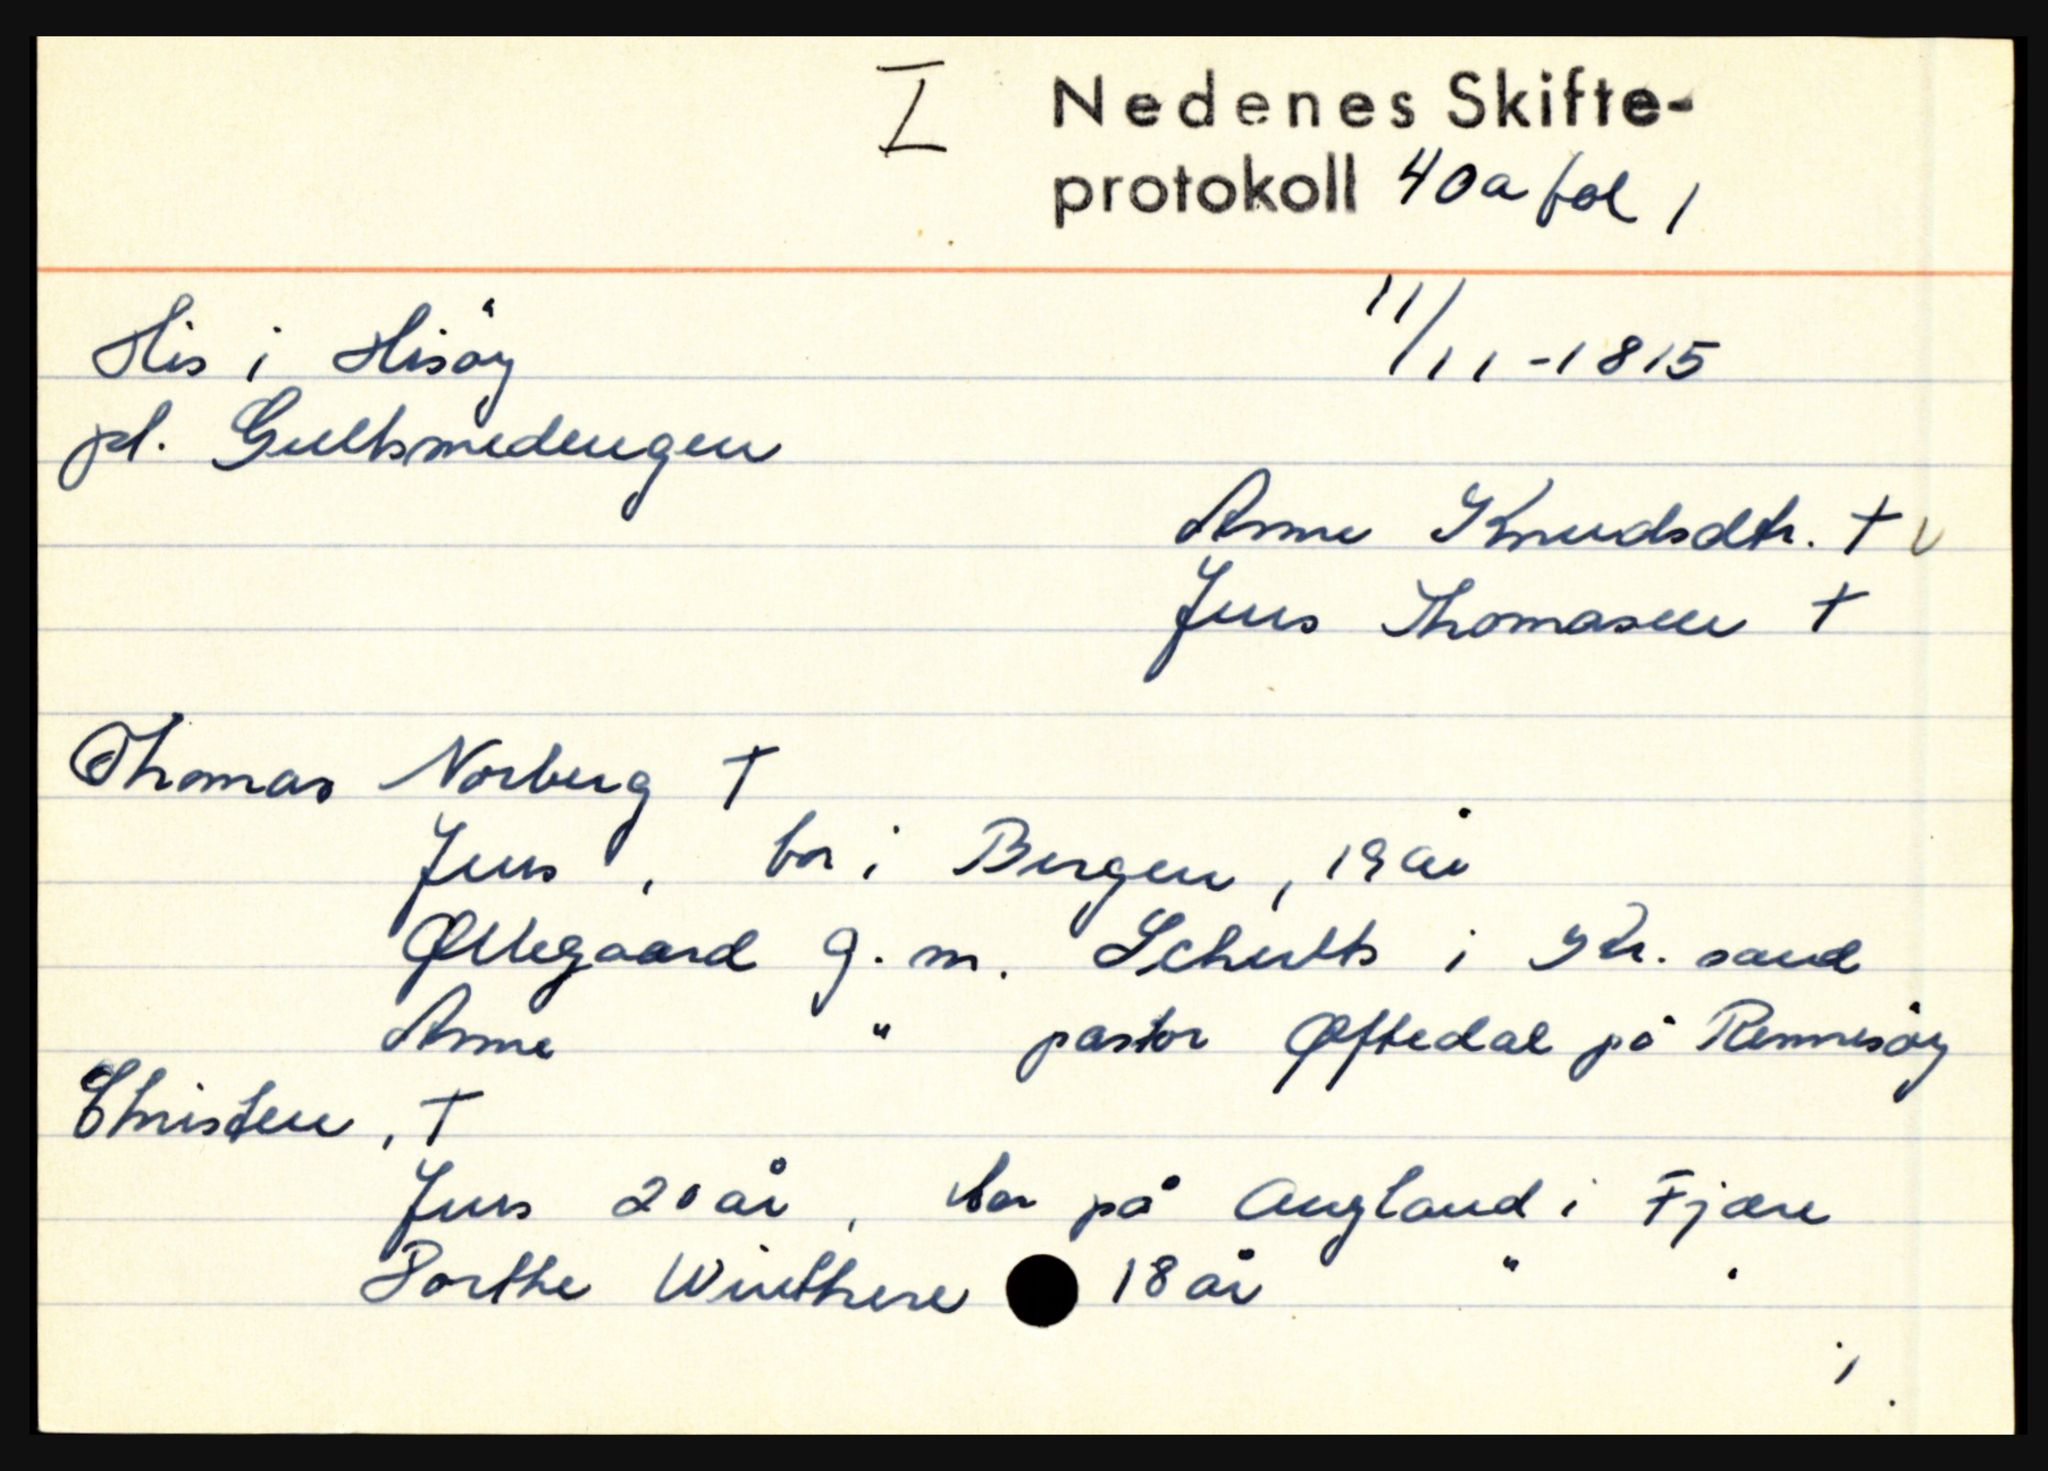 I Nedenes Skifte-
protokoll 40a fol 1
His i Hisöy 11/11-1815
pl. Gultsmedengen
Anne Knudsdtr. † v
Jens Thomasen †
Thomas Norberg †
Jens, bor i Bergen, 19 år
Øllegaard g. m. Schults i Kr. sand
Anne " pastor Øftedal på Rennesöy
Christen, †
Jens 20 år, bor på Augland i Fjære
Dorthe Winthere 18 år "